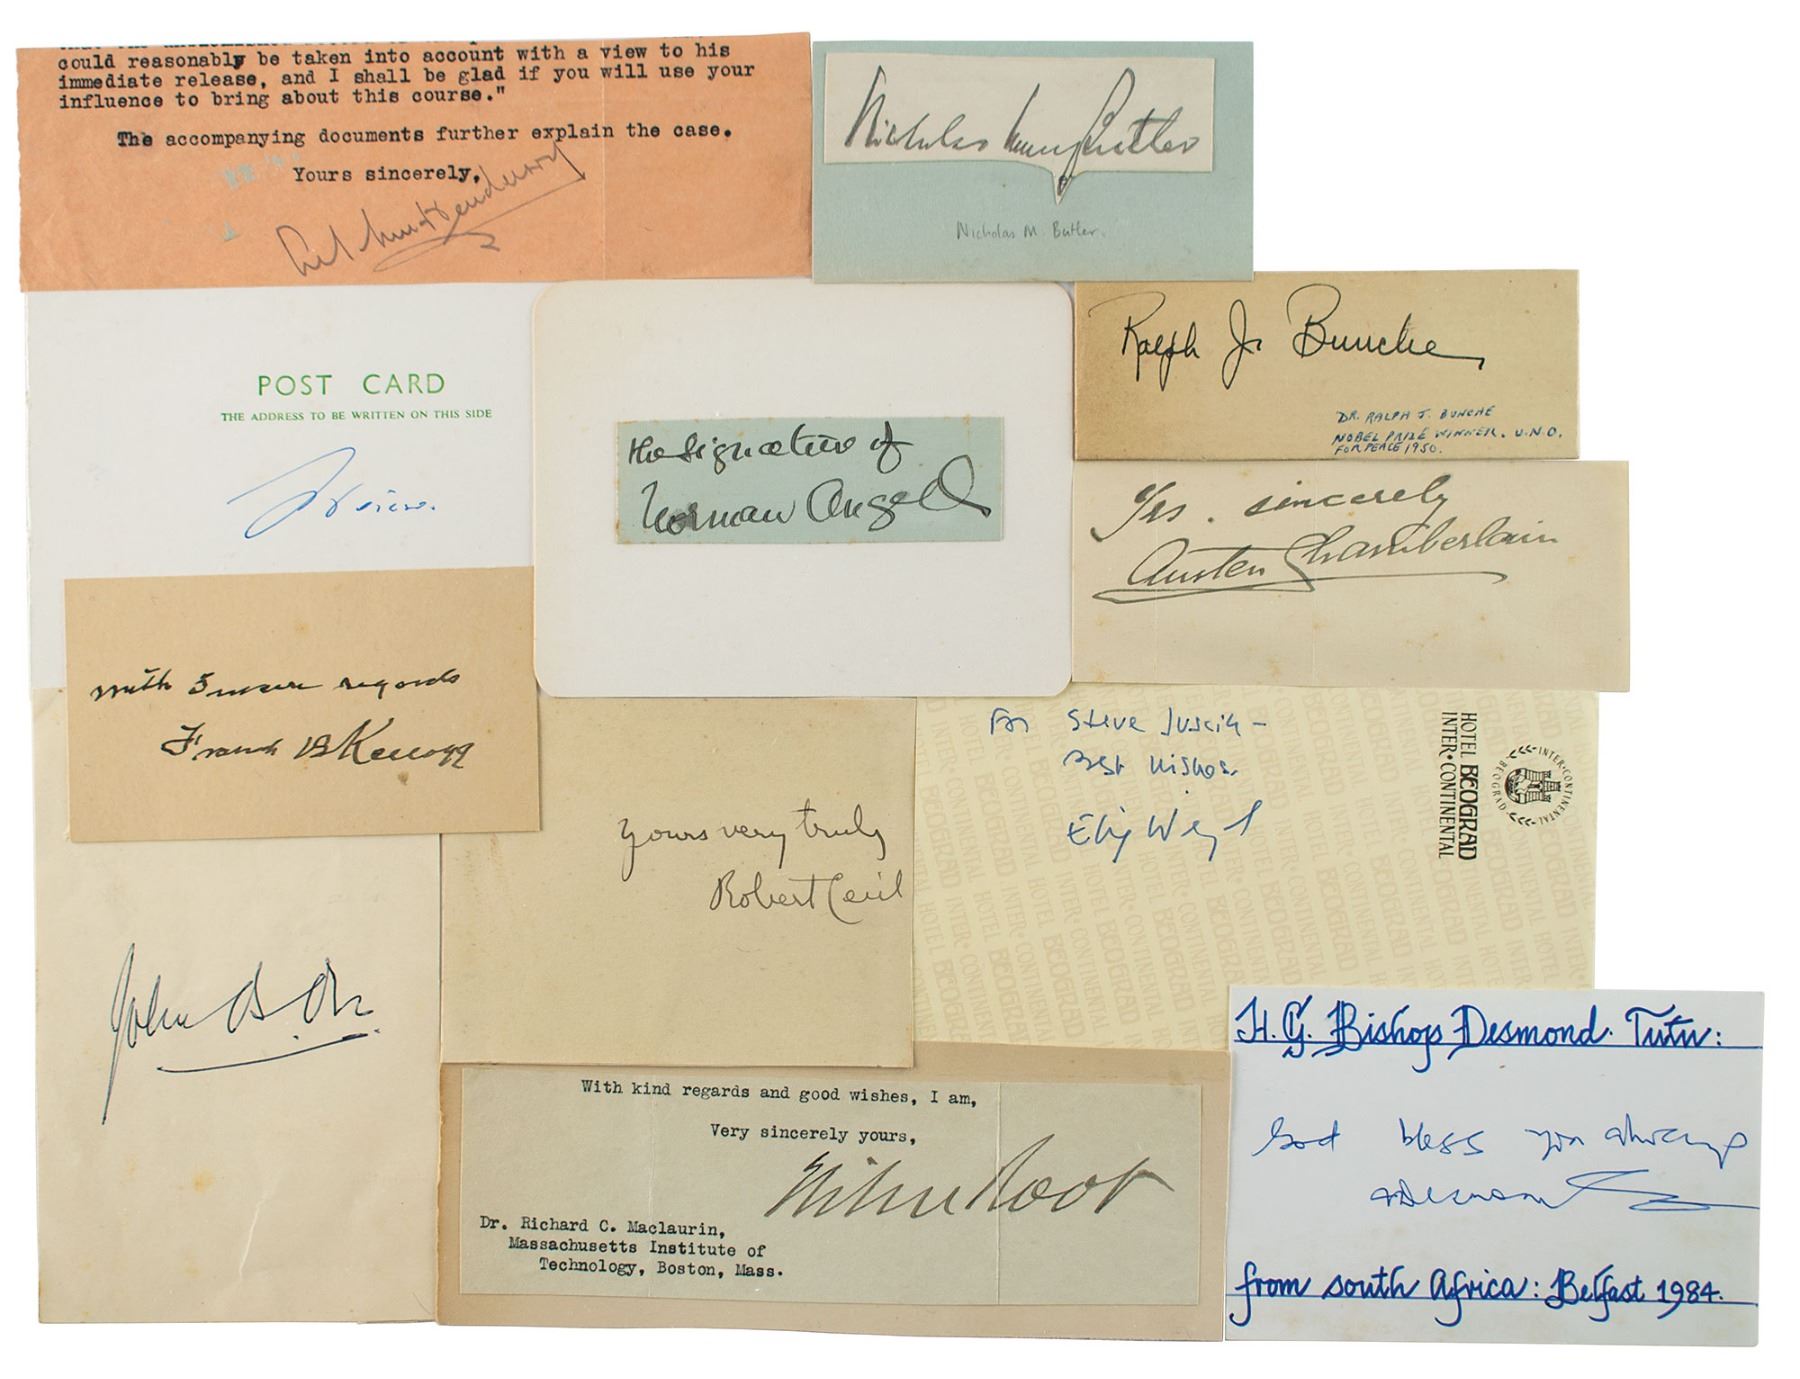 could reasonably be taken into account with a view to his
immediate release, and I shall be glad if you will use your
influence to bring about this course."
The accompanying documents further explain the case.
Yours sincerely,
Arthur Henderson
Nicholas Murray Butler
Nicholas M. Butler.
POST CARD
THE ADDRESS TO BE WRITTEN ON THIS SIDE
the signature of
Norman Angell
Ralph J. Bunche
DR. RALPH J. BUNCHE
NOBEL PRIZE WINNER. U.N.O.
FOR PEACE 1950.
Yrs. sincerely
Austen Chamberlain
with sincere regards
Frank B Kellogg
yours very truly
Robert Cecil
For Steve
Best Wishes
Elie Wiesel
HOTEL BEOGRAD
INTER·CONTINENTAL
INTER·CONTINENTAL
BEOGRAD
John B. Orr.
With kind regards and good wishes, I am,
Very sincerely yours,
Elihu Root
Dr. Richard C. Maclaurin,
Massachusetts Institute of
Technology, Boston, Mass.
H. G. Bishop Desmond. Tutu:
God bless you always
+Desmond
from south Africa: Belfast 1984.